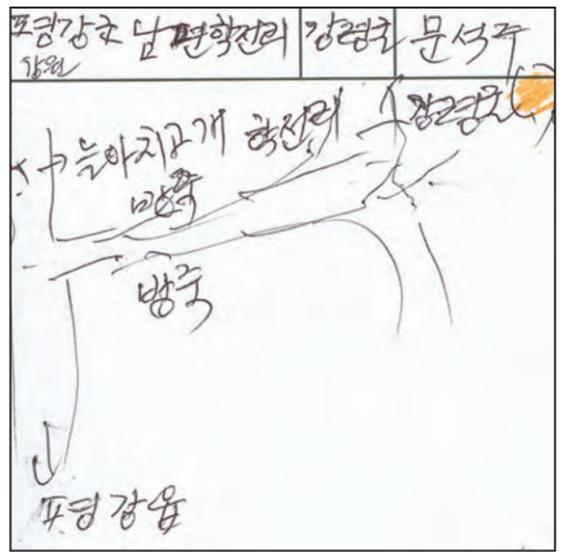 평강군 남면학전리 강령국 문석주
강원
늘아치고개 학전리 강령국
방죽
방죽
평강읍